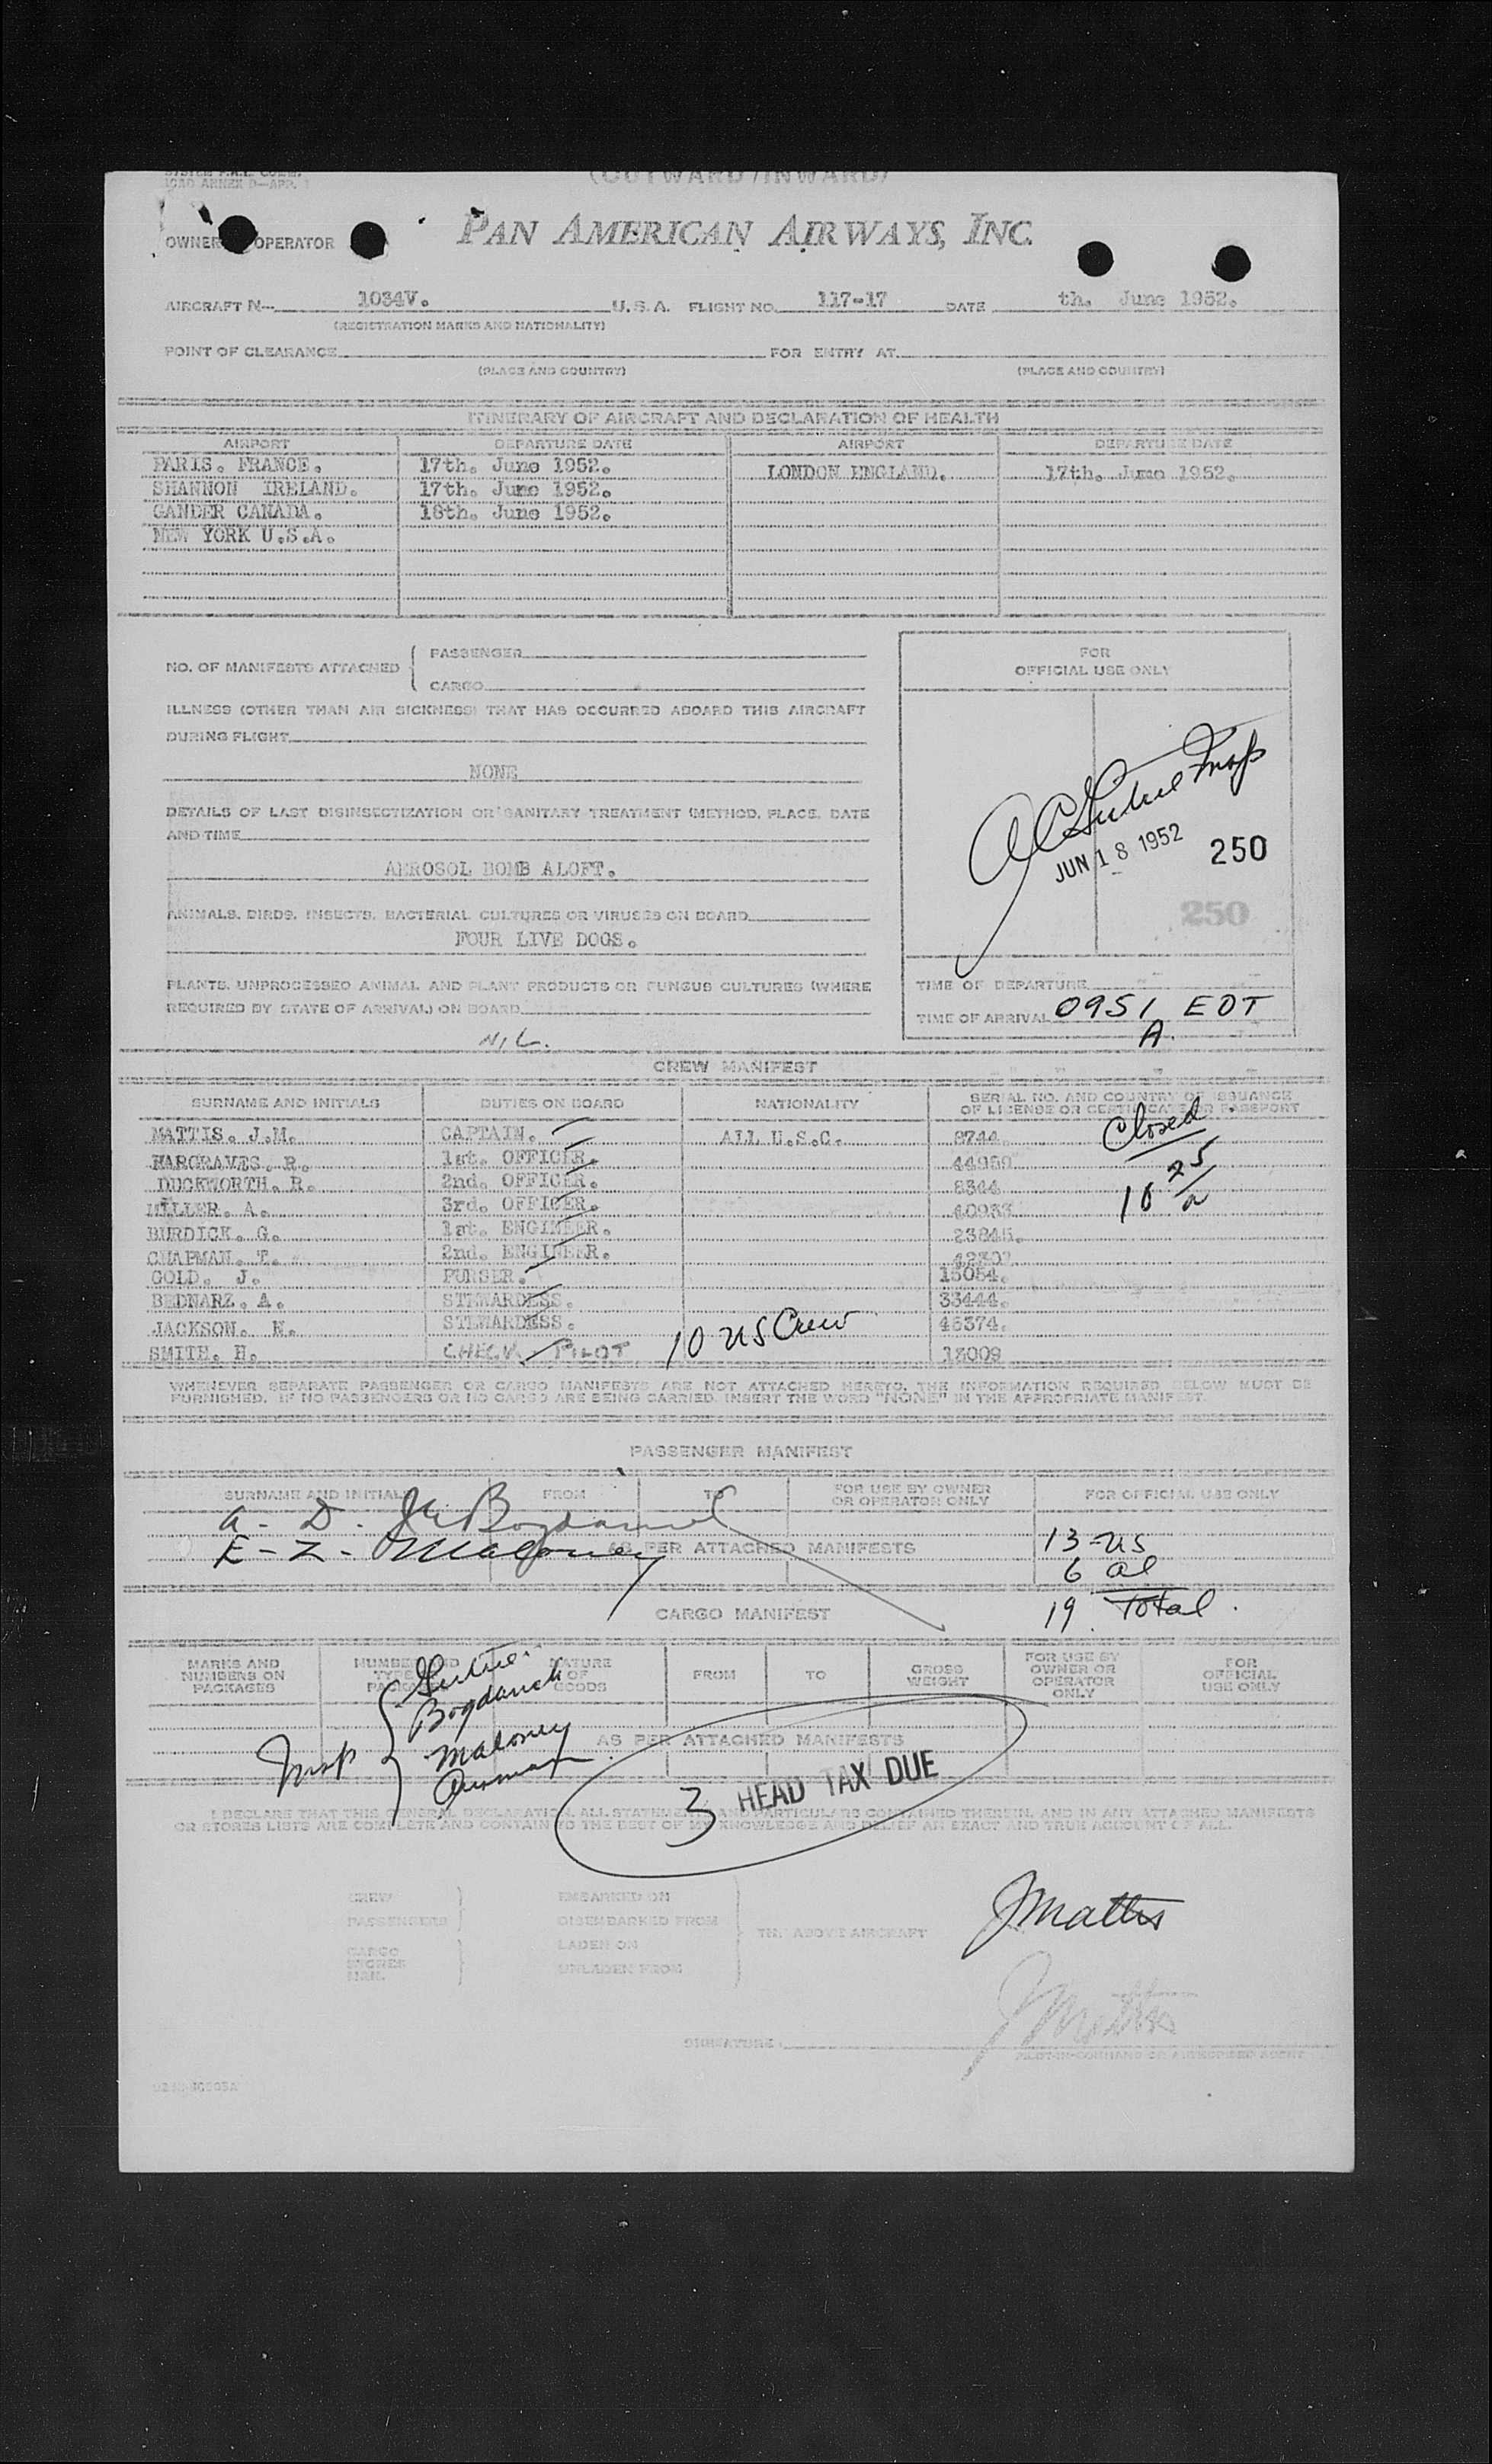 (OUTWARD/INWARD)
ICAO ANNEX 9—APP. 1
OWNER OPERATOR PAN AMERICAN AIRWAYS, INC.
AIRCRAFT N— 1034V. U.S.A. FLIGHT NO. 117-17 DATE th. June 1952.
(REGISTRATION MARKS AND NATIONALITY)
POINT OF CLEARANCE FOR ENTRY AT
(PLACE AND COUNTRY) (PLACE AND COUNTRY)
ITINERARY OF AIRCRAFT AND DECLARATION OF HEALTH
AIRPORT DEPARTURE DATE AIRPORT DEPARTURE DATE
PARIS. FRANCE. 17th. June 1952. LONDON ENGLAND. 17th. June 1952.
SHANNON IRELAND. 17th. June 1952.
GANDER CANADA. 18th. June 1952.
NEW YORK U.S.A.
NO. OF MANIFESTS ATTACHED { PASSENGER
CARGO
FOR
OFFICIAL USE ONLY
ILLNESS (OTHER THAN AIR SICKNESS) THAT HAS OCCURRED ABOARD THIS AIRCRAFT
DURING FLIGHT
NONE
DETAILS OF LAST DISINSECTIZATION OR SANITARY TREATMENT (METHOD, PLACE, DATE
AND TIME
AEROSOL BOMB ALOFT.
JUN 18 1952 250
250
ANIMALS, BIRDS, INSECTS, BACTERIAL CULTURES OR VIRUSES ON BOARD
FOUR LIVE DOGS.
PLANTS, UNPROCESSED ANIMAL AND PLANT PRODUCTS OR FUNGUS CULTURES (WHERE
REQUIRED BY STATE OF ARRIVAL) ON BOARD
NIL.
TIME OF DEPARTURE
TIME OF ARRIVAL 0951 EDT
A.
CREW MANIFEST
SURNAME AND INITIALS DUTIES ON BOARD NATIONALITY SERIAL NO. AND COUNTRY OF ISSUANCE
OF LICENSE OR CERTIFICATE OR PASSPORT
MATTIS. J.M. CAPTAIN. ALL U.S.C. 8744. Closed
HARGRAVES. R. 1st. OFFICER. 44950
DUCKWORTH. R. 2nd. OFFICER. 8344
MILLER. A. 3rd. OFFICER.
BURDICK. G. 1st. ENGINEER. 23845.
CHAPMAN. T. 2nd. ENGINEER.
GOLD. J. PURSER. 15054.
BEDNARZ. A. STEWARDESS. 33444.
JACKSON. N. STEWARDESS. 46374.
SMITH. H. CHECK PILOT 10 US Crew 18009
WHENEVER SEPARATE PASSENGER OR CARGO MANIFESTS ARE NOT ATTACHED HERETO, THE INFORMATION REQUIRED BELOW MUST BE
FURNISHED. IF NO PASSENGERS OR NO CARGO ARE BEING CARRIED, INSERT THE WORD "NONE" IN THE APPROPRIATE MANIFEST.
PASSENGER MANIFEST
SURNAME AND INITIALS FROM TO FOR USE BY OWNER
OR OPERATOR ONLY FOR OFFICIAL USE ONLY
A - D -
E - Z - Maloney AS PER ATTACHED MANIFESTS 13 - US
6 al
19 Total.
CARGO MANIFEST
MARKS AND
NUMBERS ON
PACKAGES NUMBER AND
TYPE
PACKAGES NATURE
OF
GOODS FROM TO GROSS
WEIGHT FOR USE BY
OWNER OR
OPERATOR
ONLY FOR
OFFICIAL
USE ONLY
Bogdanich
Insp { Maloney
AS PER ATTACHED MANIFESTS
3 HEAD TAX DUE
I DECLARE THAT THIS GENERAL DECLARATION, ALL STATEMENTS AND PARTICULARS CONTAINED THEREIN, AND IN ANY ATTACHED MANIFESTS
OR STORES LISTS ARE COMPLETE AND CONTAIN TO THE BEST OF MY KNOWLEDGE AND BELIEF AN EXACT AND TRUE ACCOUNT OF ALL.
CREW EMBARKED ON
PASSENGERS DISEMBARKED FROM
THE ABOVE AIRCRAFT
CARGO LADEN ON
STORES
MAIL UNLADEN FROM
JMattis
JMattis
SIGNATURE:
PILOT-IN-COMMAND OR AUTHORISED AGENT